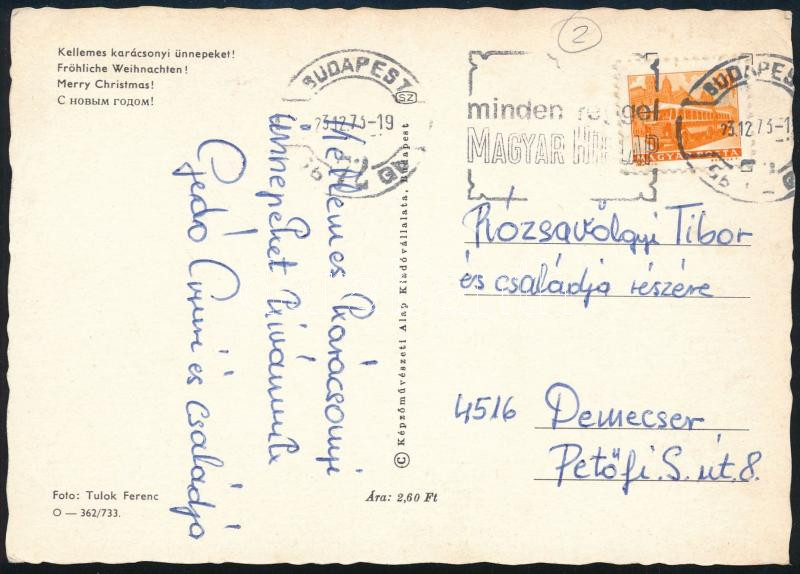 Kellemes karácsonyi ünnepeket!
Fröhliche Weihnachten!
Merry Christmas!
С новым годом!
Kellemes karácsonyi
ünnepeket kívánunk
Gedó Ernő és Családja
Foto: Tulok Ferenc
O — 362/733.
Ára: 2,60 Ft
© Képzőművészeti Alap Kiadóvállalata, Budapest
2
BUDAPEST
SZ
73.12.73-19
minden reggel
MAGYAR HIRLAP
MAGYAR POSTA
BUDAPEST
Rózsavölgyi Tibor
és családja részére
4516 Demecser
Petőfi. S. út. 8.